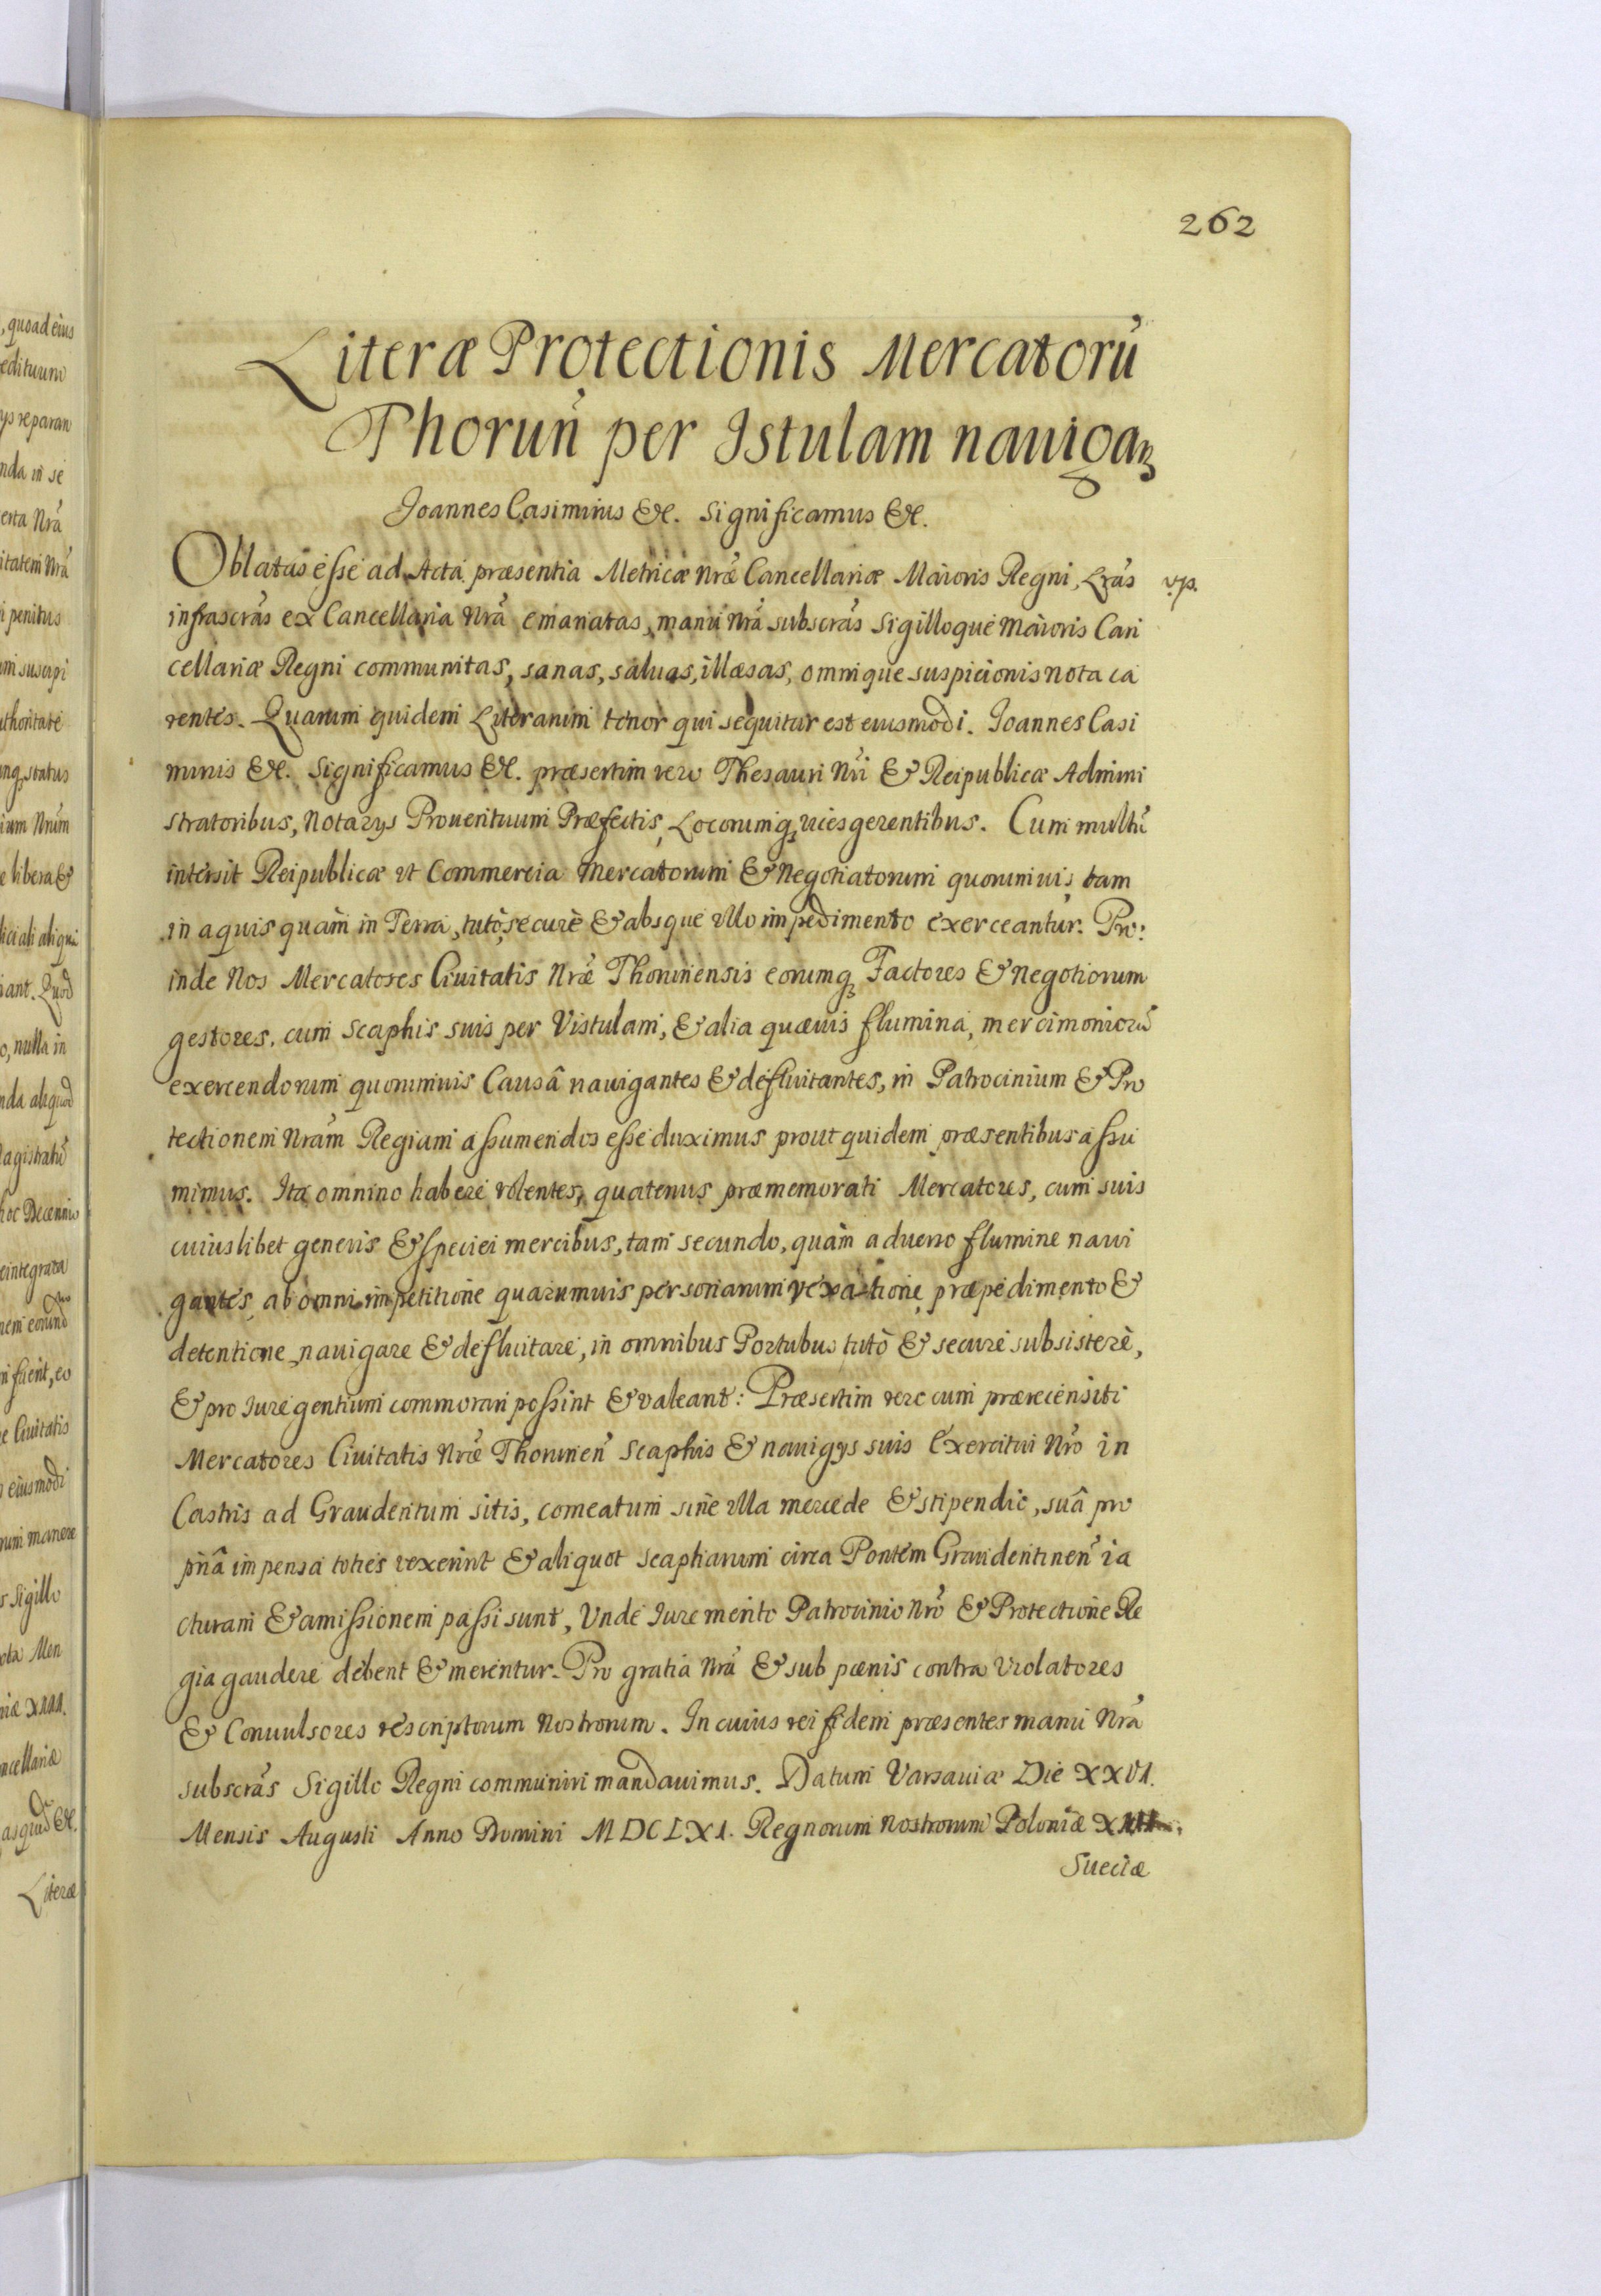 262
Literæ Protectionis Mercatorū
Thoruñ per Istulam nauigaꝫ
Joannes Casimirus &c. Significamus &c.
Oblatas esse ad Acta præsentia Metricæ Nræ Cancellariæ Maioris Regni, Lras
infrascras ex Cancellaria Nra emanatas, manu Nra subscras Sigilloque Maioris Can
cellariæ Regni communitas, sanas, saluas, illæsas, omnique suspicionis nota ca
rentes. Quarum quidem Literarum tenor qui sequitur est eiusmodi. Joannes Casi
mirus &c. Significamus &c. præsertim vero Thesauri Nri & Reipublicæ Admini
stratoribus, Notarijs Prouentuum Præfectis, Locorumqꝫ uicesgerentibus. Cum multū
intersit Reipublicæ ut Commercia Mercatorum & Negotiatorum quorumuis tam
in aquis quàm in Terra, tutò, securè & absque ullo impedimento exerceantur. Pro:
inde Nos Mercatores Ciuitatis Nræ Thorunensis eorumqꝫ Factores & Negotiorum
gestores, cum scaphis suis per Vistulam, & alia quæuis flumina, mercimoniorū
exercendorum quorumuis Causâ nauigantes & defluitantes, in Patrocinium & Pro
tectionem Nram Regiam assumendos esse duximus prout quidem præsentibus assu
mimus. Ita omnino habere volentes, quatenus præmemorati Mercatores, cum suis
cuiuslibet generis & speciei mercibus, tam secundo, quàm aduerso flumine naui
gantes, ab omni impetitione quarumuis personarum vexatione, præpedimento &
detentione nauigare & defluitare, in omnibus Portubus tutò & securè subsistere,
& pro Iure gentium commorari possint & valeant: Præsertim vero cum prærecensiti
Mercatores Ciuitatis Nræ Thoruneñ Scaphis & nauigijs suis Exercitui Nro in
Castris ad Graudentum sitis, comeatum sine ulla mercede & stipendio, suâ pro
priâ impensa toties vexerint & aliquot scapharum circa Pontem Graudentineñ ia
cturam & amissionem passi sunt, Unde Iure merito Patrocinio Nro & Protectione Re
gia gaudere debent & merentur. Pro gratia Nra & sub pœnis contra Violatores
& Conuulsores rescriptorum Nostrorum. In cuius rei fidem præsentes manu Nra
subscras Sigillo Regni communiri mandauimus. Datum Varsauiæ Die XXVI.
Mensis Augusti Anno Domini MDCLXI. Regnorum Nostrorum Poloniæ XIII.
Sueciæ